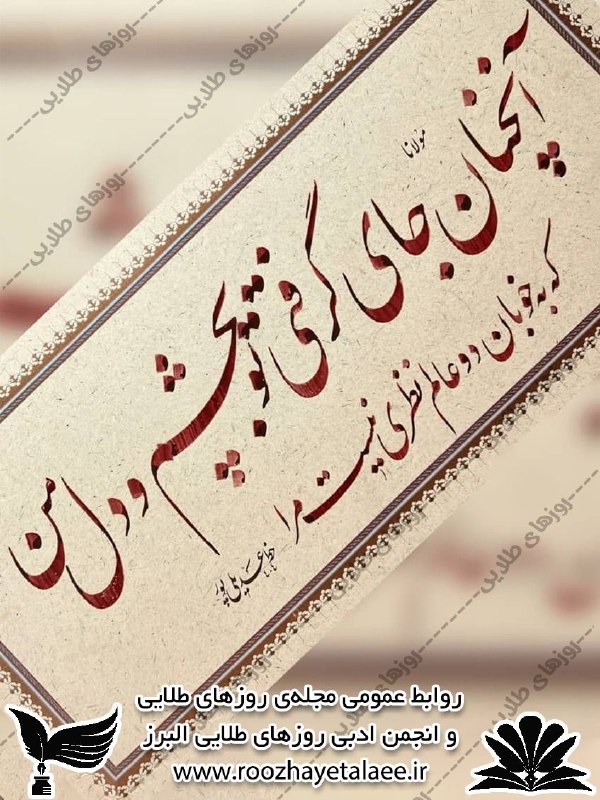 آنچنان جای گرفتی تو بچشم و دل من
مولانا
که به خوبان دو عالم نظری نیست مرا
روابط عمومی مجله‌ی روزهای طلایی
و انجمن ادبی روزهای طلایی البرز
www.roozhayetalaee.ir
روزهای طلایی